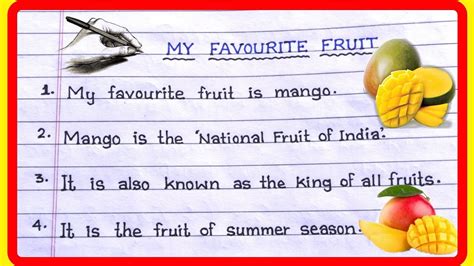 MY FAVOURITE FRUIT
1. My favourite fruit is mango.
2. Mango is the 'National Fruit of India'.
3. It is also known as the king of all fruits.
4. It is the fruit of summer season.